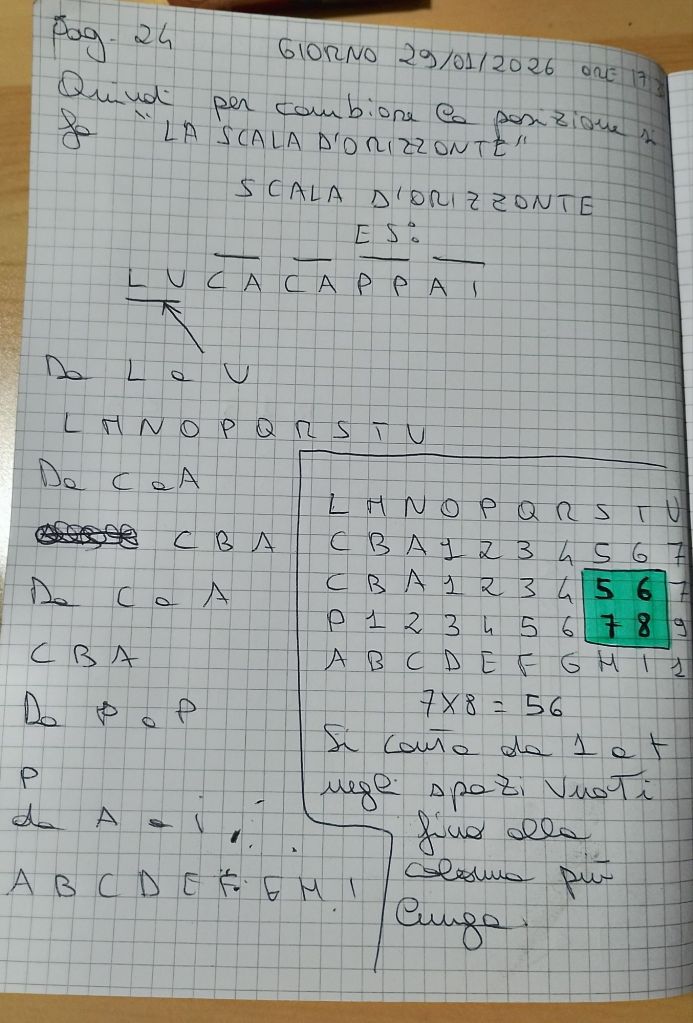 Pag. 24
GIORNO 29/01/2026 ORE 17:3
Quindi per cambiare la posizione si
fa "LA SCALA D'ORIZZONTE"
SCALA D'ORIZZONTE
ES:
L U C A C A P P A I
Da L a U
L M N O P Q R S T U
Da C a A
C B A
Da C a A
C B A
Da P a P
P
da A a i
A B C D E F G H I
L M N O P Q R S T U
C B A 1 2 3 4 5 6 7
C B A 1 2 3 4 5 6 7
P 1 2 3 4 5 6 7 8 9
A B C D E F G H I 1
7X8 = 56
Si conta da 1 a +
negli spazi vuoti
fino alla
colonna più
lunga.